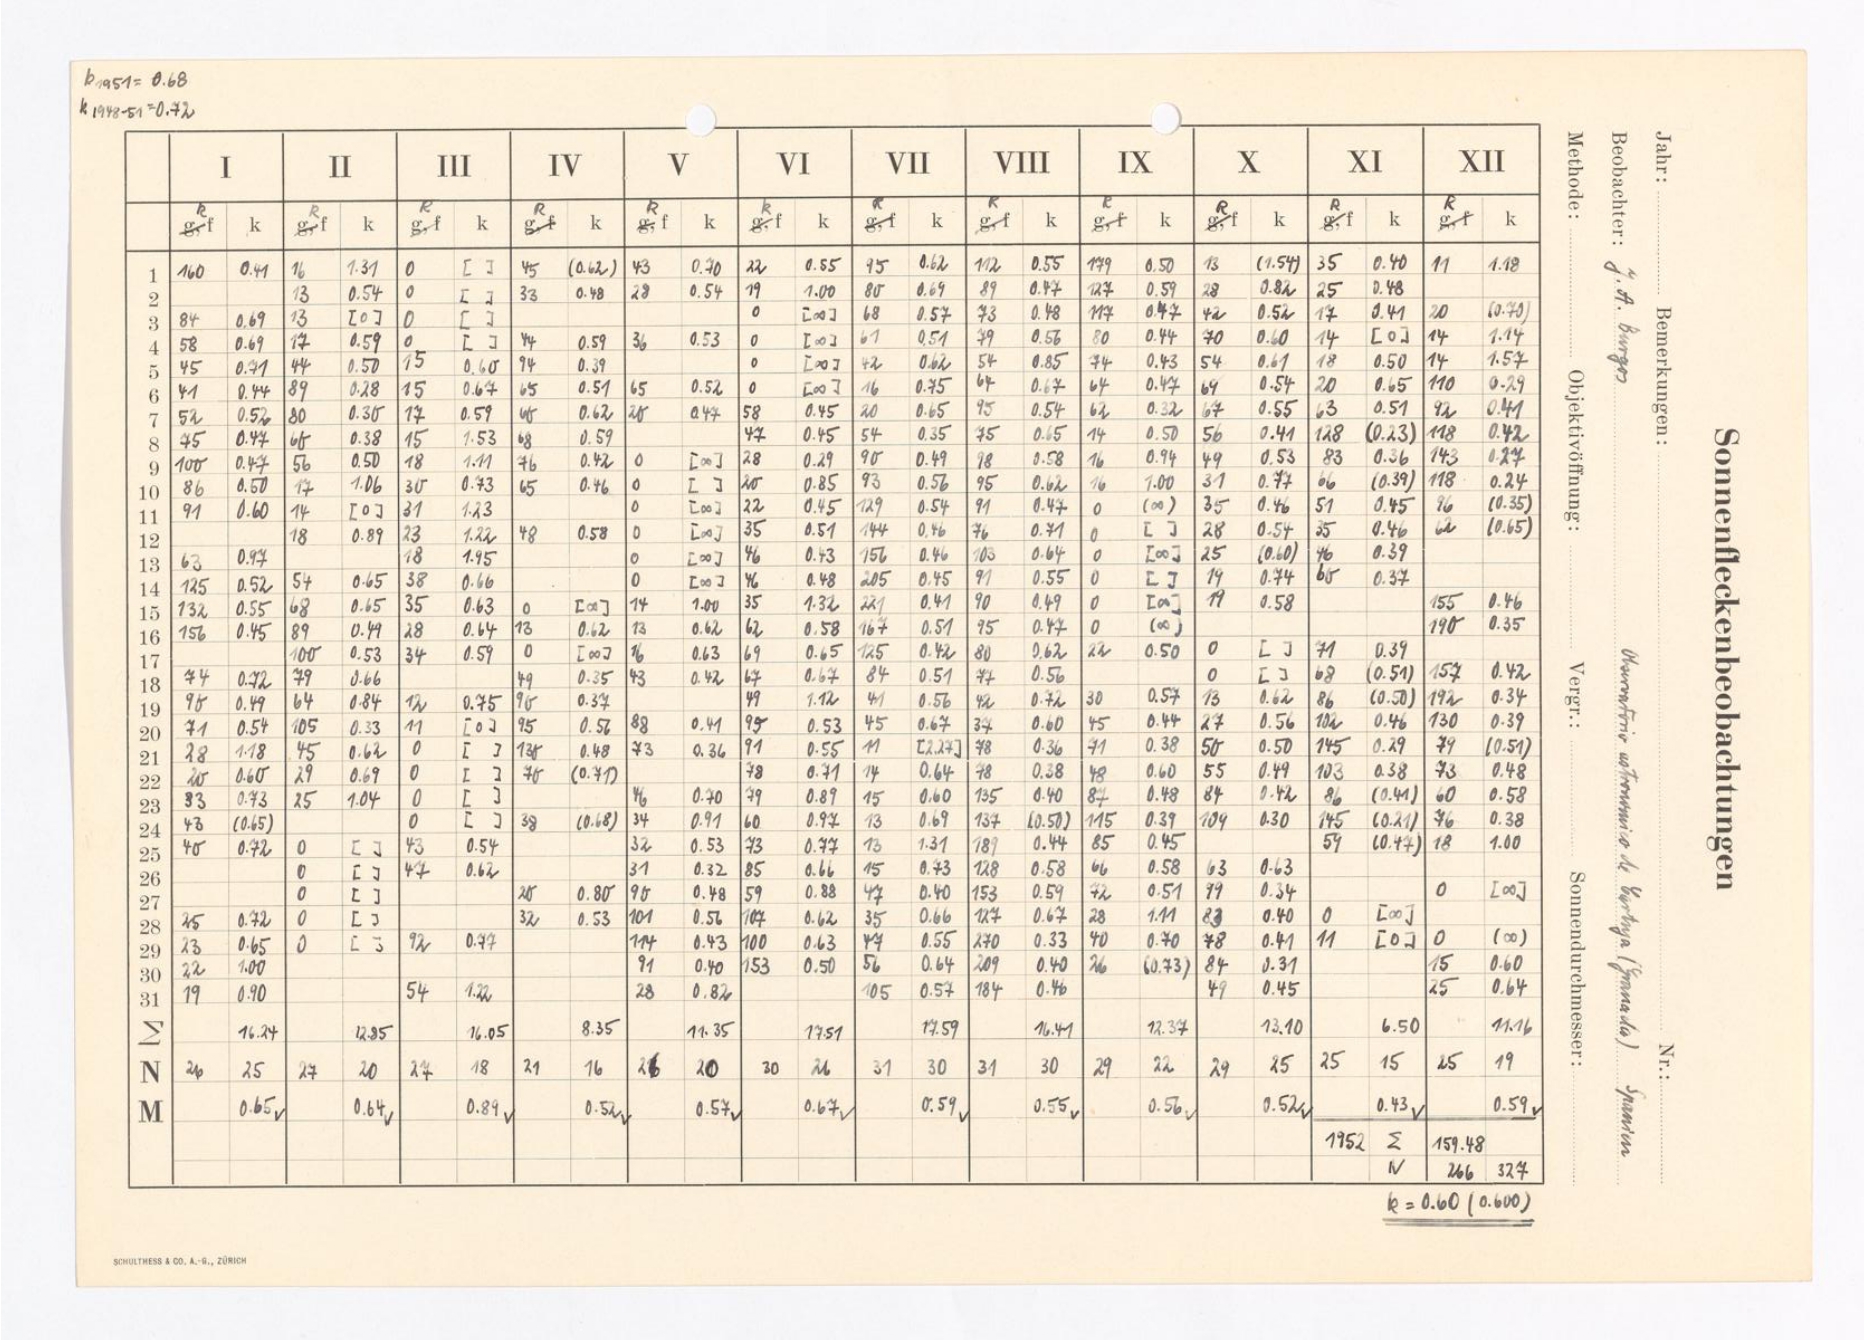 k 1951 = 0.68
k 1948-51 = 0.72
I II III IV V VI VII VIII IX X XI XII
R R R R R R R R R R R R
g,f k g,f k g,f k g,f k g,f k g,f k g,f k g,f k g,f k g,f k g,f k g,f k
1 160 0.41 16 1.31 0 [ ] 45 (0.62) 43 0.70 22 0.55 95 0.62 112 0.55 179 0.50 13 (1.54) 35 0.40 11 1.18
2 13 0.54 0 [ ] 33 0.48 28 0.54 19 1.00 80 0.69 89 0.47 127 0.59 28 0.82 25 0.48
3 84 0.69 13 [0] 0 [ ] 0 [∞] 68 0.57 73 0.48 117 0.47 42 0.52 17 0.41 20 (0.70)
4 58 0.69 17 0.59 0 [ ] 44 0.59 36 0.53 0 [∞] 61 0.51 79 0.56 80 0.44 70 0.60 14 [0] 14 1.14
5 45 0.71 44 0.50 15 0.60 94 0.39 0 [∞] 42 0.62 54 0.85 74 0.43 54 0.61 18 0.50 14 1.57
6 41 0.44 89 0.28 15 0.67 65 0.51 65 0.52 0 [∞] 16 0.75 64 0.67 64 0.47 69 0.54 20 0.65 110 0.29
7 52 0.52 80 0.30 17 0.59 60 0.62 20 0.47 58 0.45 20 0.65 95 0.54 62 0.32 67 0.55 63 0.51 92 0.41
8 75 0.47 60 0.38 15 1.53 68 0.59 47 0.45 54 0.35 75 0.65 14 0.50 56 0.41 128 (0.23) 118 0.42
9 100 0.47 56 0.50 18 1.11 76 0.42 0 [∞] 28 0.29 90 0.49 98 0.58 16 0.94 49 0.53 83 0.36 143 0.27
10 86 0.50 17 1.06 30 0.73 65 0.46 0 [ ] 20 0.85 93 0.56 95 0.62 16 1.00 31 0.77 66 (0.39) 118 0.24
11 91 0.60 14 [0] 31 1.23 0 [∞] 22 0.45 129 0.54 91 0.47 0 (∞) 35 0.46 51 0.45 96 (0.35)
12 18 0.89 23 1.22 48 0.58 0 [∞] 35 0.51 144 0.46 76 0.71 0 [ ] 28 0.54 35 0.46 62 (0.65)
13 63 0.97 18 1.95 0 [∞] 46 0.43 156 0.46 103 0.64 0 [∞] 25 (0.60) 46 0.39
14 125 0.52 54 0.65 38 0.66 0 [∞] 46 0.48 205 0.45 91 0.55 0 [ ] 19 0.74 60 0.37
15 132 0.55 68 0.65 35 0.63 0 [∞] 14 1.00 35 1.32 221 0.41 90 0.49 0 [∞] 19 0.58 155 0.46
16 156 0.45 89 0.49 28 0.64 13 0.62 13 0.62 62 0.58 167 0.51 95 0.47 0 (∞) 190 0.35
17 100 0.53 34 0.59 0 [∞] 16 0.63 69 0.65 125 0.42 80 0.62 22 0.50 0 [ ] 71 0.39
18 74 0.72 79 0.66 49 0.35 43 0.42 67 0.67 84 0.51 77 0.56 0 [ ] 68 (0.51) 157 0.42
19 90 0.49 64 0.84 12 0.75 90 0.37 49 1.12 41 0.56 42 0.72 30 0.57 13 0.62 86 (0.50) 192 0.34
20 71 0.54 105 0.33 11 [0] 95 0.56 88 0.41 95 0.53 45 0.67 37 0.60 45 0.44 27 0.56 102 0.46 130 0.39
21 28 1.18 45 0.62 0 [ ] 130 0.48 73 0.36 91 0.55 11 [2.27] 78 0.36 71 0.38 50 0.50 145 0.29 79 (0.51)
22 20 0.60 29 0.69 0 [ ] 70 (0.71) 78 0.71 14 0.64 78 0.38 48 0.60 55 0.49 103 0.38 73 0.48
23 33 0.73 25 1.04 0 [ ] 46 0.70 79 0.89 15 0.60 135 0.40 87 0.48 84 0.42 86 (0.41) 60 0.58
24 43 (0.65) 0 [ ] 38 (0.68) 34 0.91 60 0.97 13 0.69 137 (0.50) 115 0.39 109 0.30 145 (0.21) 76 0.38
25 40 0.72 0 [ ] 43 0.54 32 0.53 73 0.77 13 1.31 189 0.44 85 0.45 59 (0.47) 18 1.00
26 0 [ ] 47 0.62 31 0.32 85 0.66 15 0.73 128 0.58 66 0.58 63 0.63
27 0 [ ] 20 0.80 90 0.48 59 0.88 47 0.40 153 0.59 72 0.51 99 0.34 0 [∞]
28 25 0.72 0 [ ] 32 0.53 101 0.56 107 0.62 35 0.66 127 0.67 28 1.11 83 0.40 0 [∞]
29 23 0.65 0 [ ] 92 0.77 114 0.43 100 0.63 47 0.55 270 0.33 40 0.70 78 0.41 11 [0] 0 (∞)
30 22 1.00 91 0.40 153 0.50 56 0.64 209 0.40 26 (0.73) 84 0.31 15 0.60
31 19 0.90 54 1.22 28 0.82 105 0.57 184 0.46 49 0.45 25 0.64
Σ 16.24 12.85 16.05 8.35 11.35 17.51 17.59 16.41 12.37 13.10 6.50 11.16
N 26 25 27 20 27 18 21 16 26 20 30 26 31 30 31 30 29 22 29 25 25 15 25 19
M 0.65✓ 0.64✓ 0.89✓ 0.52✓ 0.57✓ 0.67✓ 0.59✓ 0.55✓ 0.56✓ 0.52✓ 0.43✓ 0.59✓
1952 Σ 159.48
N 266 327
k = 0.60 (0.600)
SCHULTHESS & CO. A.-G., ZÜRICH
Sonnenfleckenbeobachtungen
Jahr: Bemerkungen: Nr.:
Beobachter: J. A. Burgos Observatorio astronomico de Cartuja (Granada) Spanien
Methode: Objektivöffnung: Vergr.: Sonnendurchmesser: